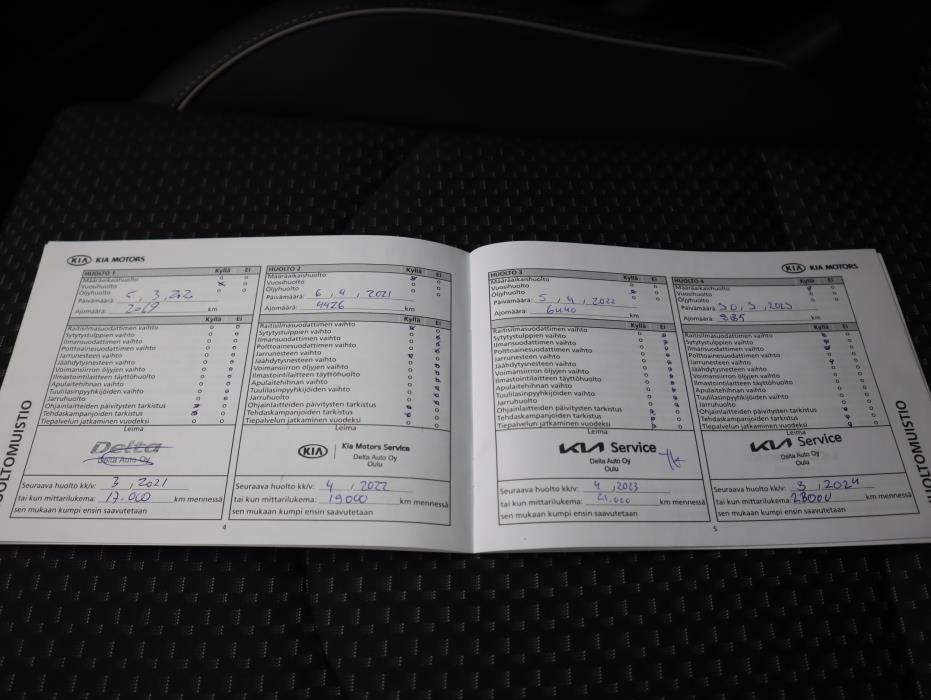 KIA KIA MOTORS
HUOLTO 1 Kyllä Ei
Määräaikaishuolto
Vuosihuolto
Öljyhuolto
Päivämäärä:
Ajomäärä: 2069 km
Kyllä Ei
Raitisilmasuodattimen vaihto
Sytytystulppien vaihto
Ilmansuodattimen vaihto
Polttoainesuodattimen vaihto
Jarrunesteen vaihto
Jäähdytysnesteen vaihto
Voimansiirron öljyjen vaihto
Ilmastointilaitteen täyttöhuolto
Apulaitehihnan vaihto
Tuulilasinpyyhkijöiden vaihto
Jarruhuolto
Ohjainlaitteiden päivitysten tarkistus
Tehdaskampanjoiden tarkistus
Tiepalvelun jatkaminen vuodeksi
Leima
Delta
Delta Auto Oy
Seuraava huolto kk/v: 3, 2021
tai kun mittarilukema: 17.000 km mennessä
sen mukaan kumpi ensin saavutetaan
HUOLTO 2 Kyllä Ei
Määräaikaishuolto
Vuosihuolto
Öljyhuolto
Päivämäärä: 6, 4, 2021
Ajomäärä: 4426 km
Kyllä Ei
Raitisilmasuodattimen vaihto
Sytytystulppien vaihto
Ilmansuodattimen vaihto
Polttoainesuodattimen vaihto
Jarrunesteen vaihto
Jäähdytysnesteen vaihto
Voimansiirron öljyjen vaihto
Ilmastointilaitteen täyttöhuolto
Apulaitehihnan vaihto
Tuulilasinpyyhkijöiden vaihto
Jarruhuolto
Ohjainlaitteiden päivitysten tarkistus
Tehdaskampanjoiden tarkistus
Tiepalvelun jatkaminen vuodeksi
Leima
KIA Kia Motors Service
Delta Auto Oy
Oulu
Seuraava huolto kk/v: 4, 2022
tai kun mittarilukema: 19000 km mennessä
sen mukaan kumpi ensin saavutetaan
4
HUOLTOMUISTIO
HUOLTO 3 Kyllä Ei
Määräaikaishuolto
Vuosihuolto
Öljyhuolto
Päivämäärä: 5, 4, 2022
Ajomäärä: 6440 km
Kyllä Ei
Raitisilmasuodattimen vaihto
Sytytystulppien vaihto
Ilmansuodattimen vaihto
Polttoainesuodattimen vaihto
Jarrunesteen vaihto
Jäähdytysnesteen vaihto
Voimansiirron öljyjen vaihto
Ilmastointilaitteen täyttöhuolto
Apulaitehihnan vaihto
Tuulilasinpyyhkijöiden vaihto
Jarruhuolto
Ohjainlaitteiden päivitysten tarkistus
Tehdaskampanjoiden tarkistus
Tiepalvelun jatkaminen vuodeksi
Leima
KIA Service
Delta Auto Oy
Oulu
Seuraava huolto kk/v: 4, 2023
tai kun mittarilukema: 21.000 km mennessä
sen mukaan kumpi ensin saavutetaan
KIA KIA MOTORS
HUOLTO 4 Kyllä Ei
Määräaikaishuolto
Vuosihuolto
Öljyhuolto
Päivämäärä: 30, 3, 2023
Ajomäärä: km
Kyllä Ei
Raitisilmasuodattimen vaihto
Sytytystulppien vaihto
Ilmansuodattimen vaihto
Polttoainesuodattimen vaihto
Jarrunesteen vaihto
Jäähdytysnesteen vaihto
Voimansiirron öljyjen vaihto
Ilmastointilaitteen täyttöhuolto
Apulaitehihnan vaihto
Tuulilasinpyyhkijöiden vaihto
Jarruhuolto
Ohjainlaitteiden päivitysten tarkistus
Tehdaskampanjoiden tarkistus
Tiepalvelun jatkaminen vuodeksi
Leima
KIA Service
Delta Auto Oy
Oulu
Seuraava huolto kk/v: 3, 2024
tai kun mittarilukema: 23000 km mennessä
sen mukaan kumpi ensin saavutetaan
5
HUOLTOMUISTIO